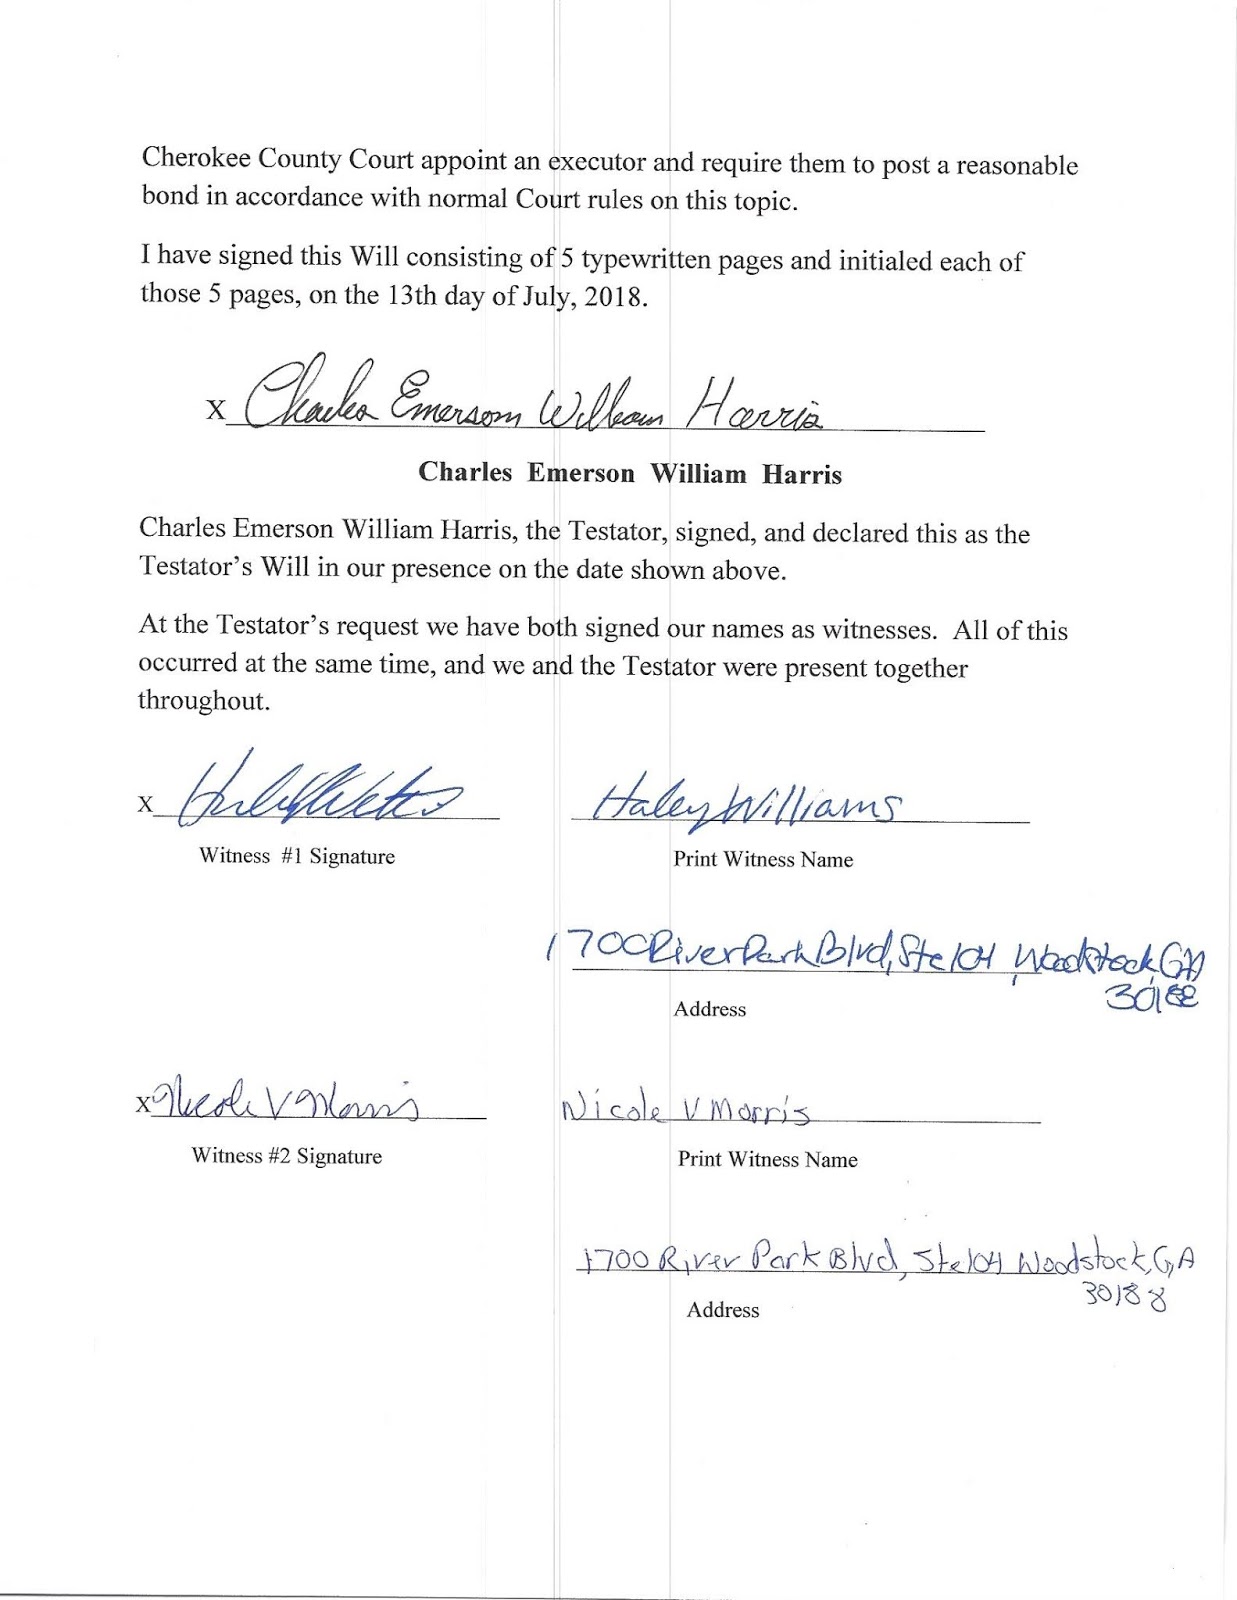 Cherokee County Court appoint an executor and require them to post a reasonable
bond in accordance with normal Court rules on this topic.
I have signed this Will consisting of 5 typewritten pages and initialed each of
those 5 pages, on the 13th day of July, 2018.
X Charles Emerson William Harris
Charles Emerson William Harris
Charles Emerson William Harris, the Testator, signed, and declared this as the
Testator's Will in our presence on the date shown above.
At the Testator's request we have both signed our names as witnesses. All of this
occurred at the same time, and we and the Testator were present together
throughout.
X Haley Williams
Witness #1 Signature Print Witness Name
1700 River Park Blvd, Ste 104, Woodstock, GA
30188
Address
X Nicole V Morris Nicole V Morris
Witness #2 Signature Print Witness Name
1700 River Park Blvd, Ste 104 Woodstock, GA
30188
Address